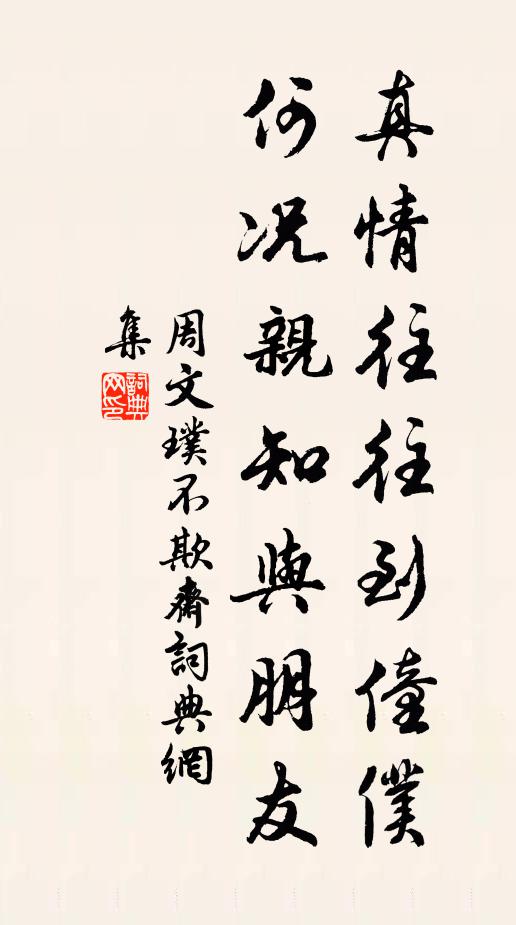 真情往往到僮僕
何况親知與朋友
周文璞不欺齋詞典網
集
詞典
网印